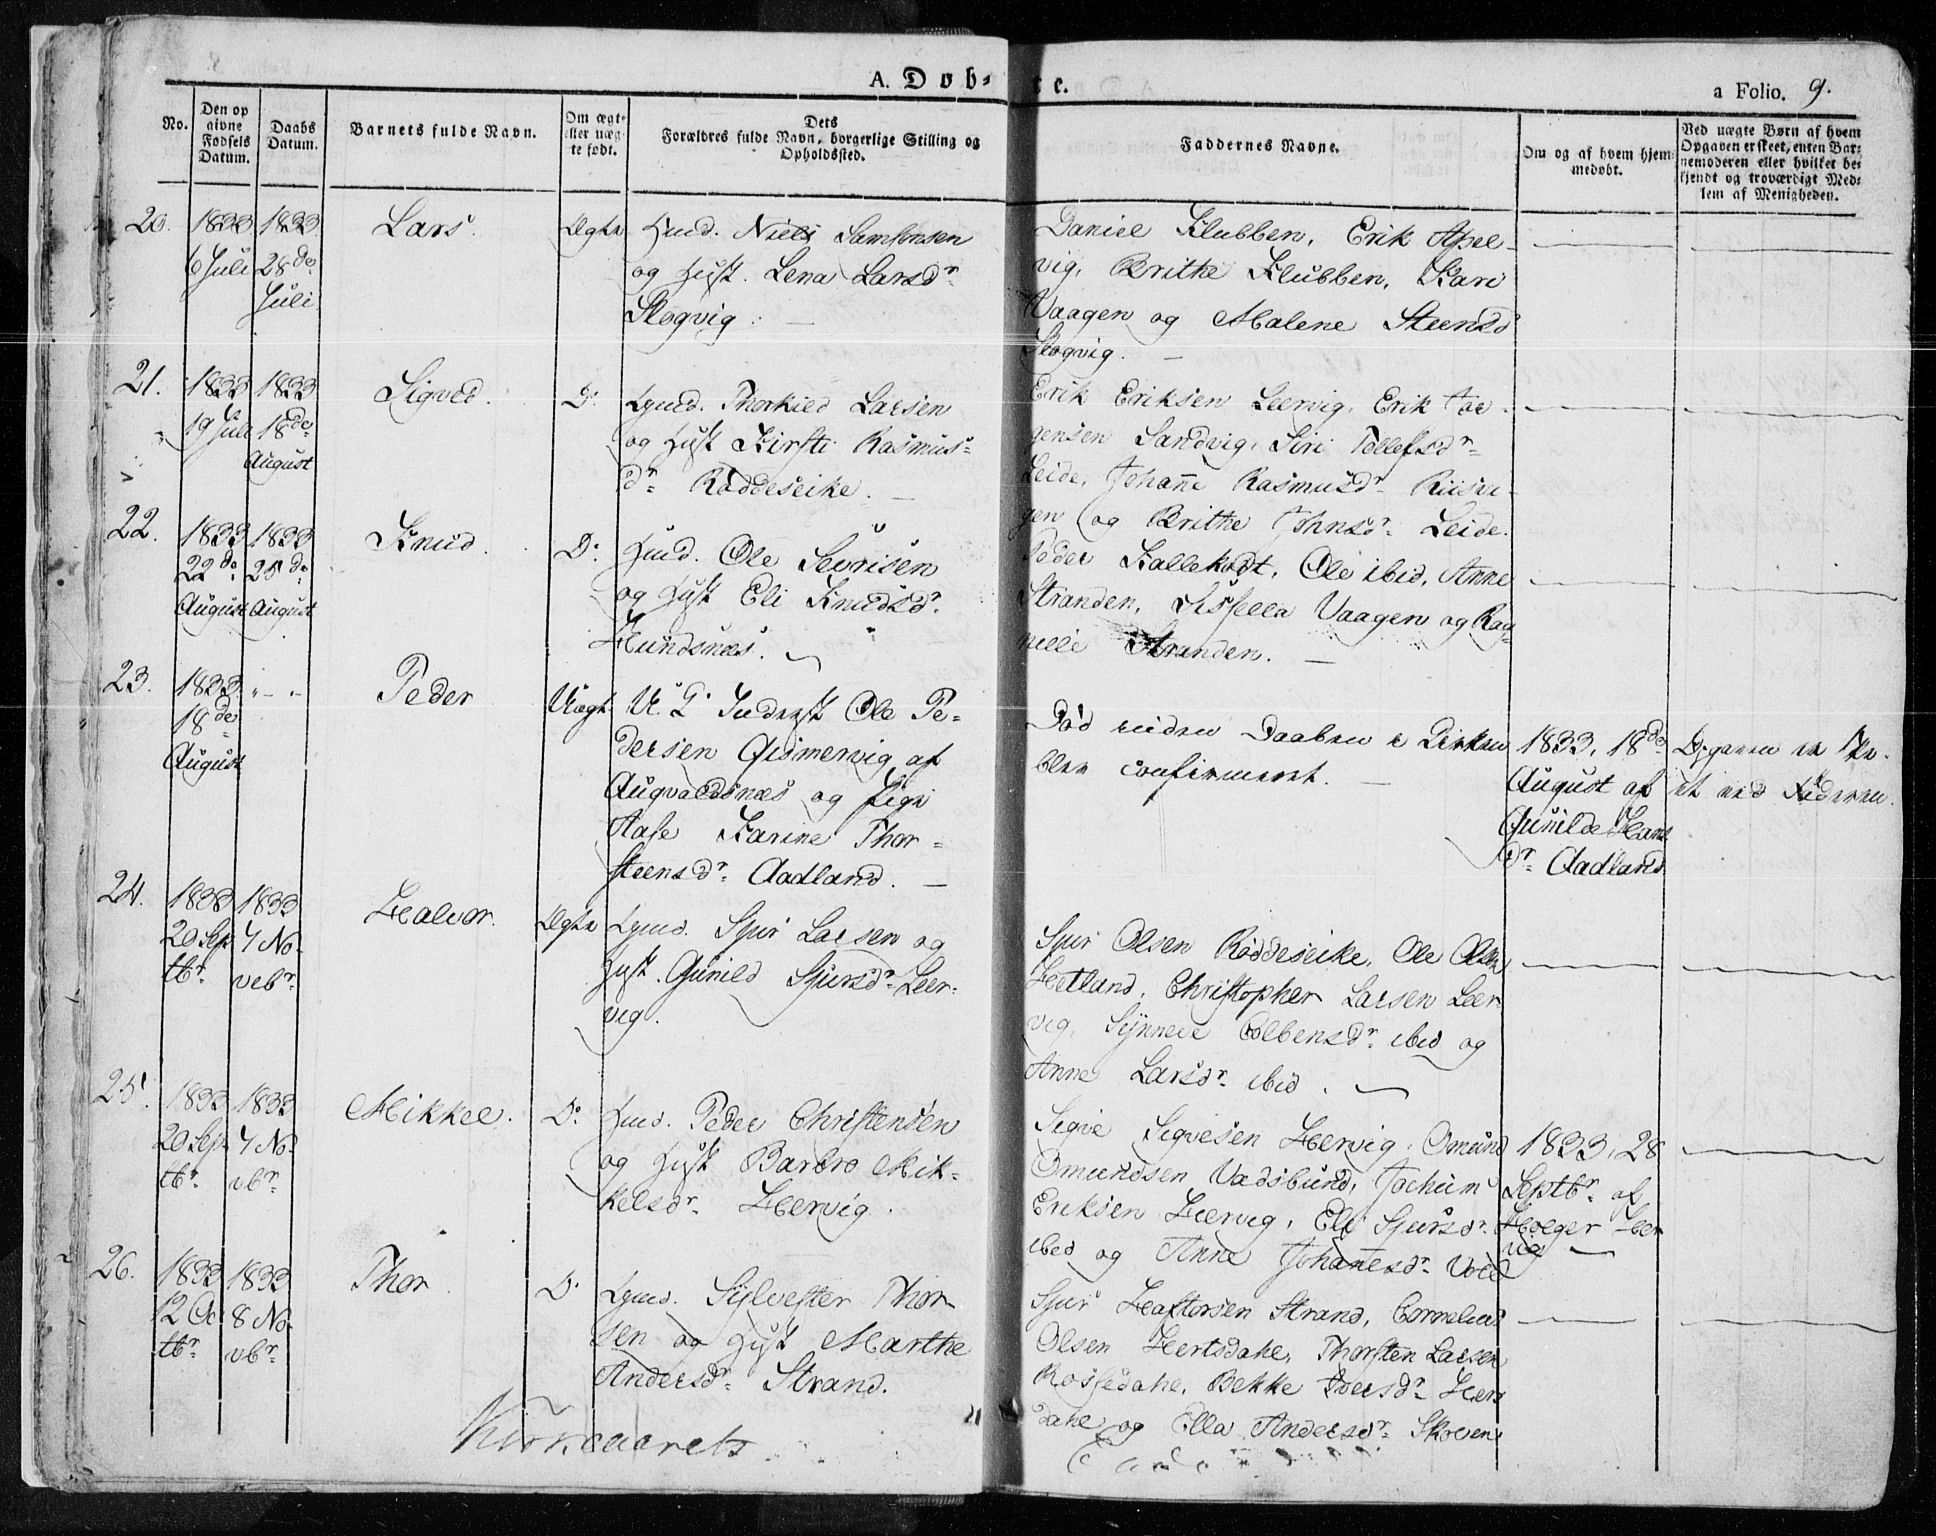 A. Døbte.
a Folio. 9.
No.
Den op
givne
Fødsels
Datum.
Daabs
Datum.
Barnets fulde Navn.
Om ægte
eller uæg-
te født.
Dets
Forældres fulde Navn, borgerlige Stilling og
Opholdssted.
Faddernes Navne.
Om og af hvem hjem-
medøbt.
Ved uægte Børn af hvem
Opgaven er skeet, enten Bar-
nemoderen eller hvilket be-
kjendt og troværdigt Med-
lem af Menigheden.
20. 1833 6 Juli
1833 28de Juli
Lars.
Ægte
Huusmd. Niels Samsonsen
og Hust. Lena Larsdr.
Slogvig. —
Daniel Klubben, Erik Apel-
vig, Brithe Klubben, Kari
Vaagen og Malene Steensd
Slogvig. —
21. 1833 19 Juli
1833 18de August
Sigved.
Do.
Gmd. Thorkild Larsen
og Hust Kirsti Rasmus-
dr. Røddeseike. —
Erik Eriksen Leervig, Erik Jør-
gensen Sandvig, Siri Tollefsdr.
Leide, Johanne Rasmusdr. Riisvi-
gen og Brithe Johnsdr. Leide.
22. 1833 22de August
1833 25de August
Knud.
Do.
Huusmd. Ole Sevrisen
og Hust Eli Knudsdr.
Hundsnæs.
Peder Kallekodt, Ole ibid, Anne
Stranden, Sissella Vaagen og Rag-
nille Stranden. —
23. 1833 18de August
" — "
Peder
Uægte
U. G. Inderst Ole Pe-
dersen Gismervig af
Augvaldsnæs og Pige
Aase Karine Thor-
steensdr. Aadland. —
Død inden Daaben i Kirken
blev confirmeret. —
1833, 18de
August af
Gunilde Hans
dr. Aadland
Opgaven er ske-
et ved Faderen.
24. 1833 20 Septbr.
1833 7 Novebr.
Halvor.
Ægte
Gmd. Sjur Larsen og
Hust. Gunild Sjursdr. Leer-
vig.
Sjur Olsen Røddeseike, Ole Olsen
Hetland, Christopher Larsen Leer
vig, Synneve Colbensdr. ibid og
Anne Larsdr. ibid. —
25. 1833 20 Septbr.
1833 7 Novbr.
Mikkel.
Do.
Huusmd. Peder Christensen
og Hust Barbro Mik-
kelsdr. Hervig.
Sigve Sigvesen Hervig, Omund
Omundsen Vadsbund, Jochum
Eriksen Leervig, Eli Sjursdr.
ibid og Anne Johannesdr. Vold
1833, 28
Septbr. af
Holger Her
vig —
26. 1833 12 Octbr.
1833 8 Novbr.
Thor
Do.
Gmd. Sylvester Thor-
sen og Hust Marthe
Andersdr. Strand.
Sjur Haftorsen Strand, Cornelius
Olsen Hertsdahl, Thorsten Larsen
Rossedahl, Bekke Iversdr. Herts
dahl og Ella Andersdr. Skoven
Kirkeaarets
Ende